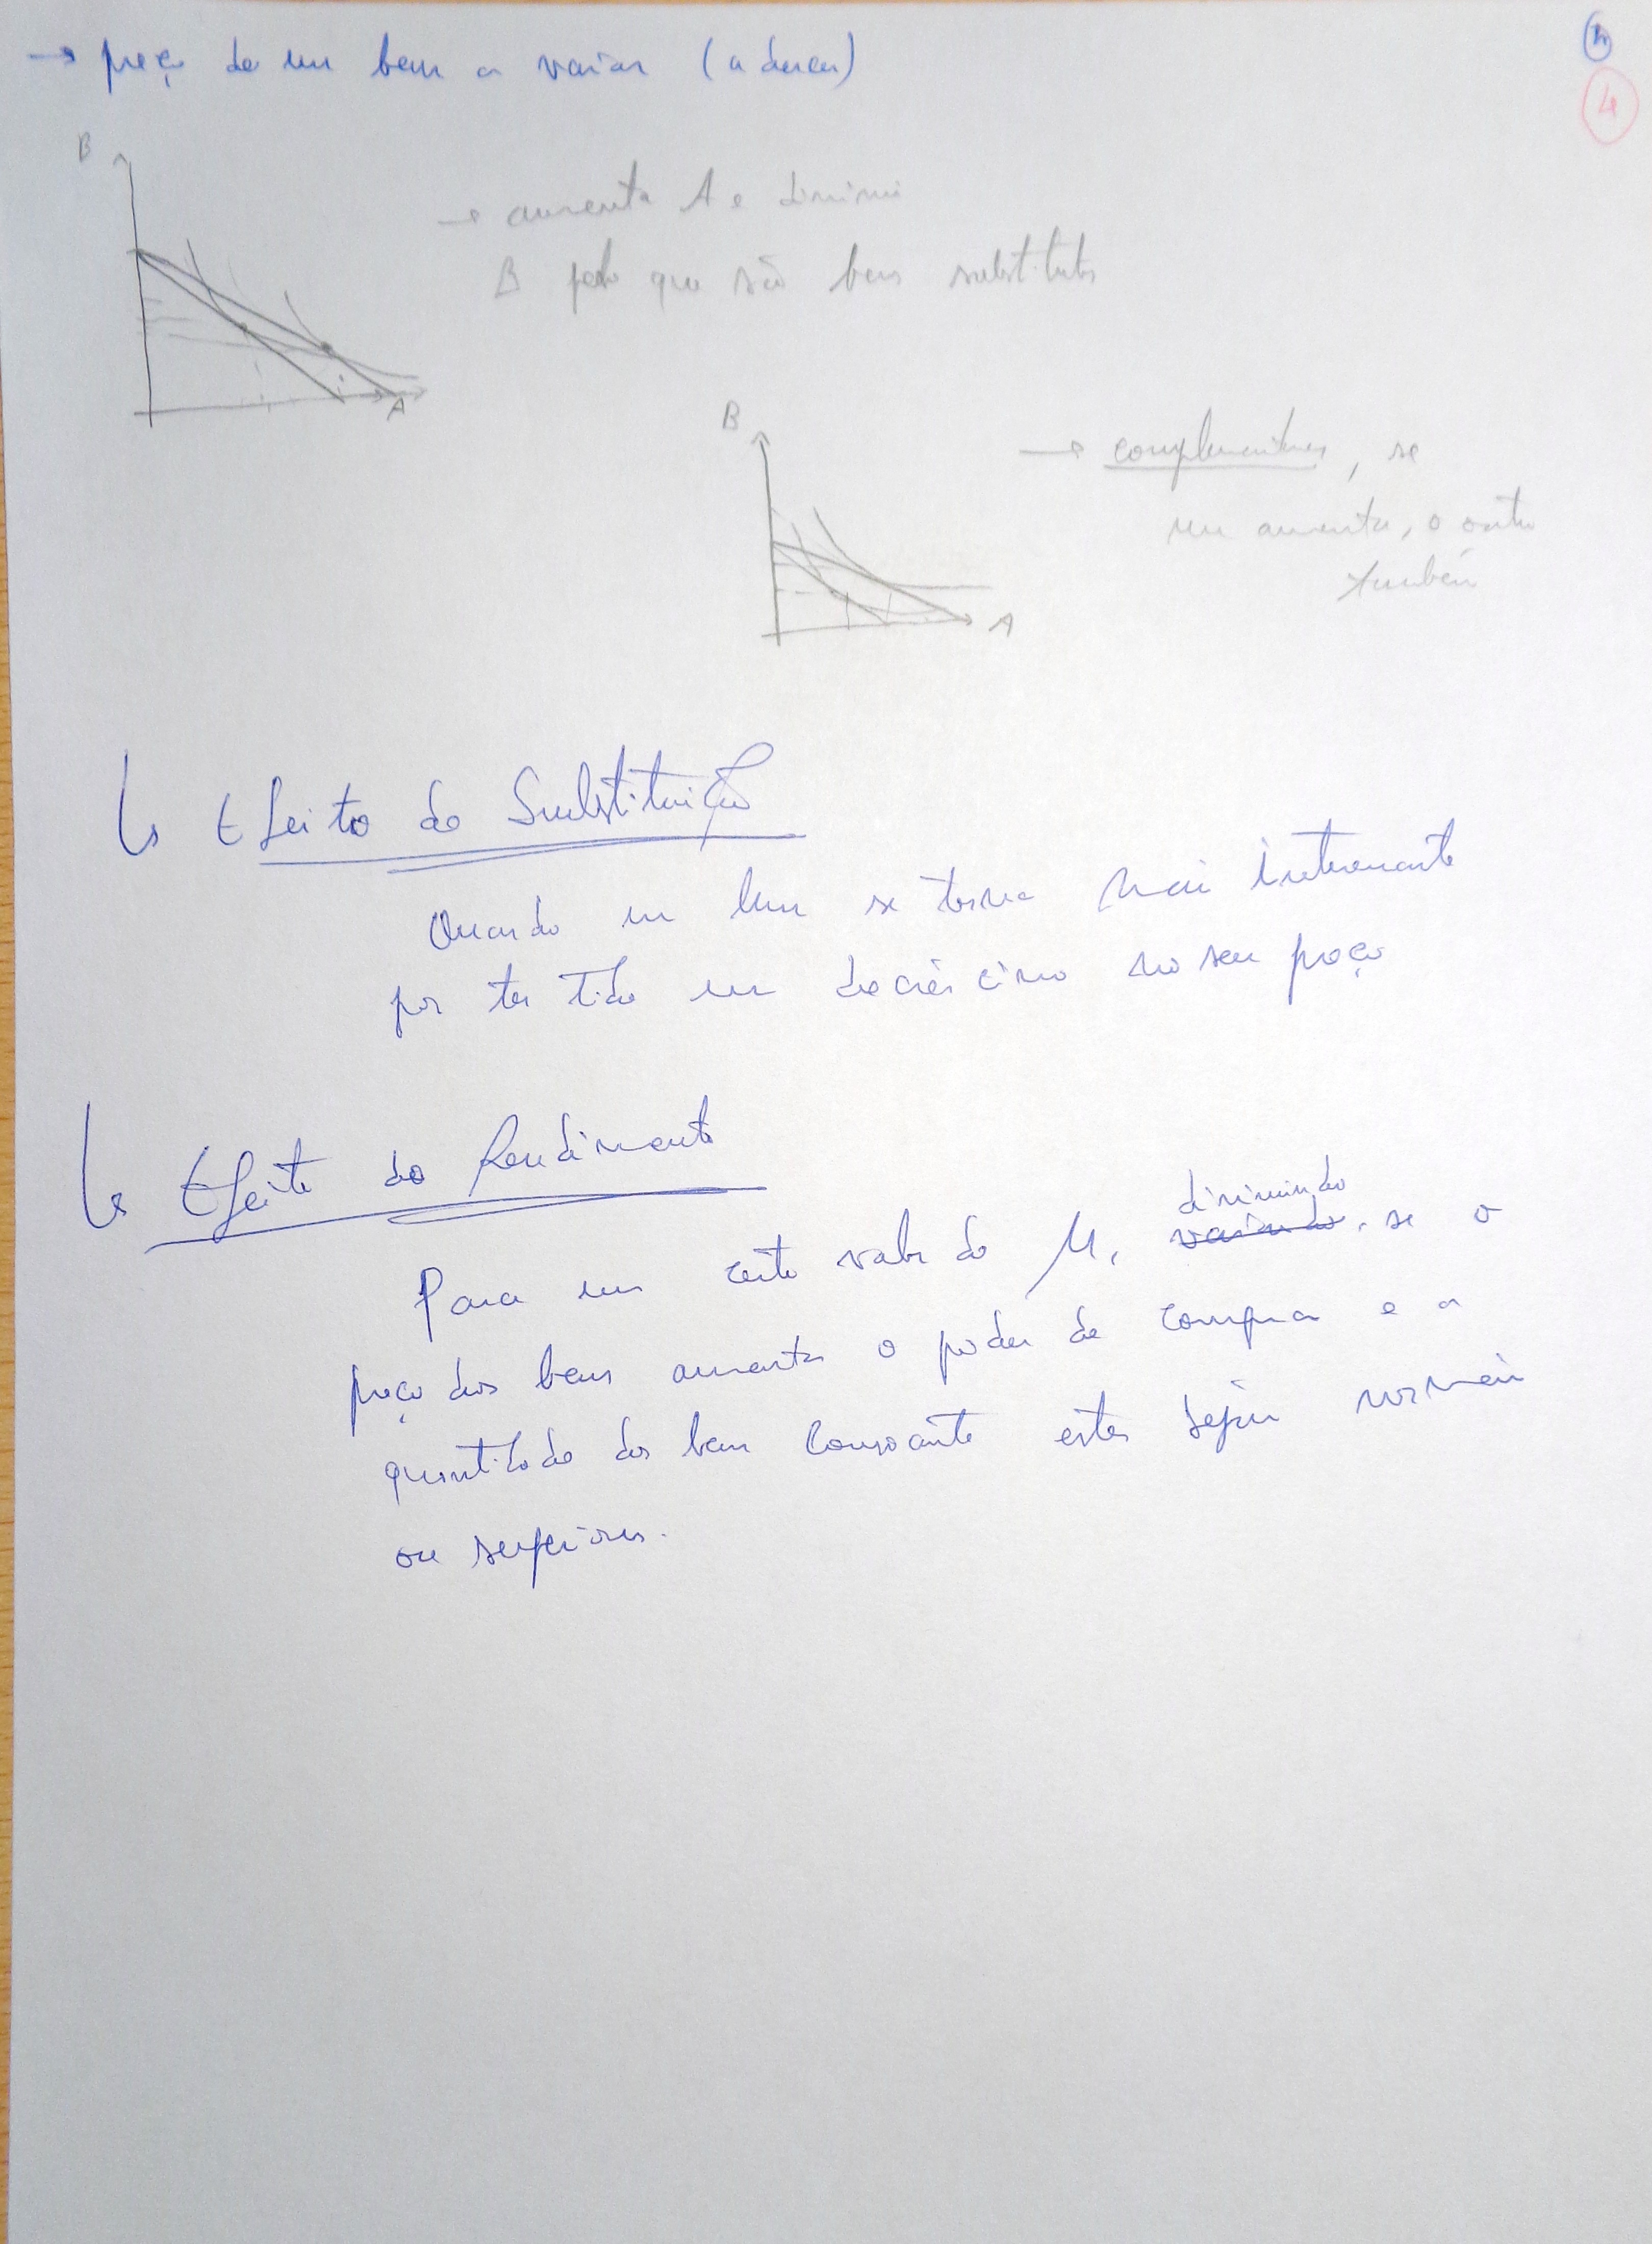 → preço de um bem a variar (a descer)
4
B
→ aumenta A e diminui
B pelo que são bens substitutos
A
B
→ complementares, se
um aumenta, o outro
também
A
↳ Efeito de Substituição
Quando um bem se torna mais interessante
por ter tido um decréscimo no seu preço
↳ Efeito do Rendimento
diminuindo
Para um certo valor de M, variando-se o
preço dos bens aumenta o poder de compra e a
quantidade dos bens consoante estes sejam normais
ou superiores.